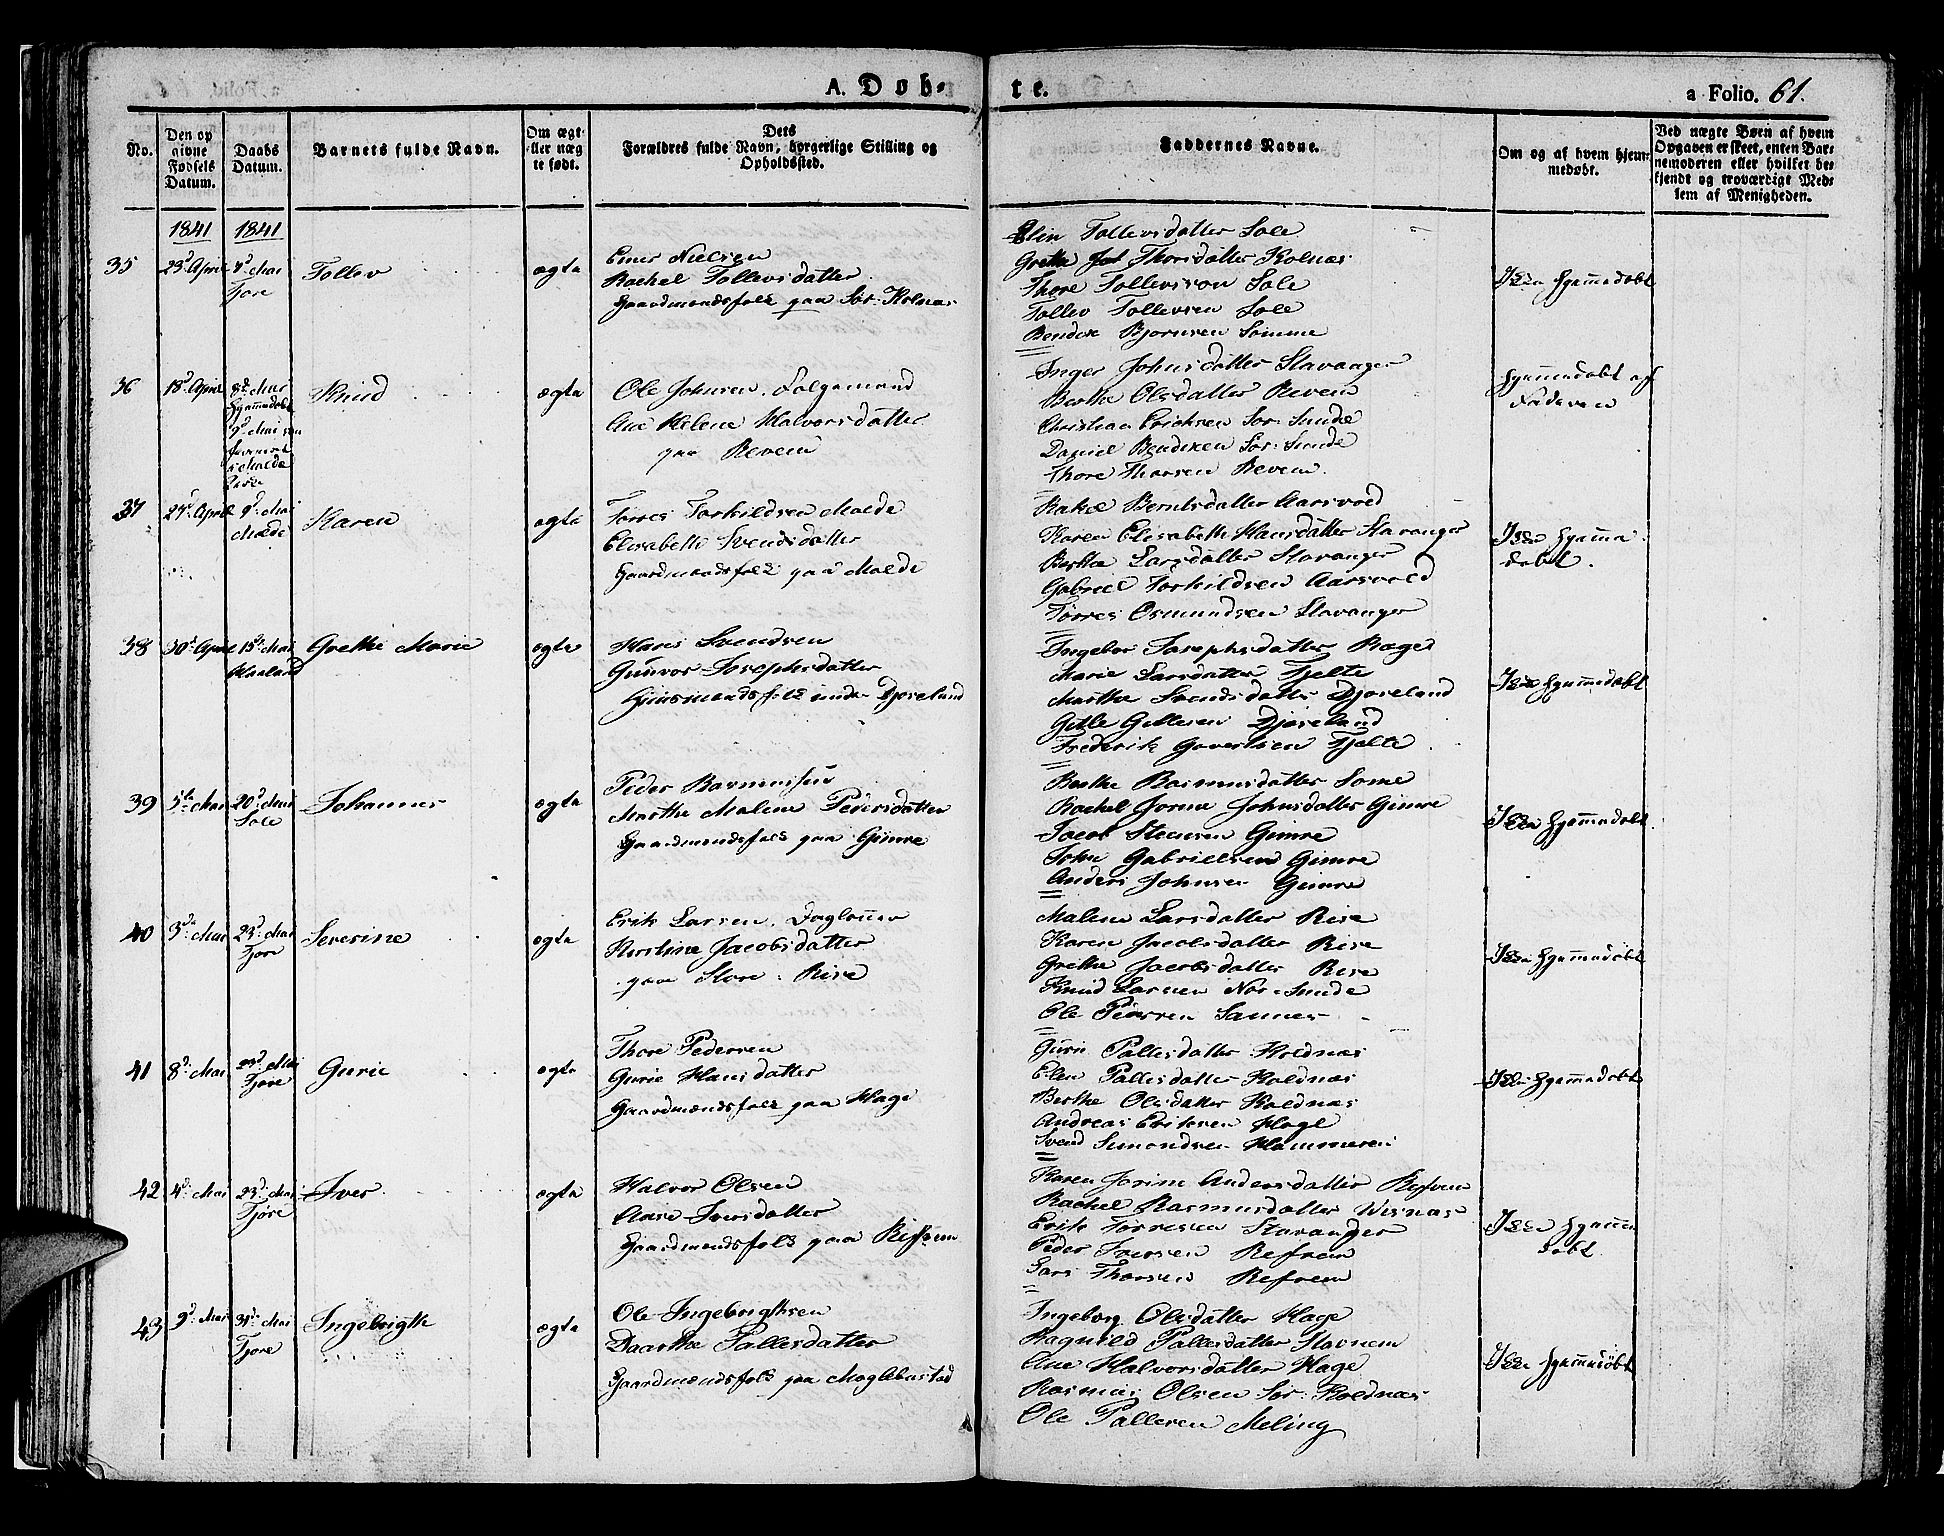 A. Døb-
te.
a Folio. 61.
No.
Den op
givne
Fødsels
Datum.
Daabs
Datum.
Barnets fulde Navn.
Om ægt-
eller næg
te født.
Dets
Forældres fulde Navn, borgerlige Stilling og
Opholdssted.
Faddernes Navne.
Om og af hvem hjem-
medøbt.
Ved nægte Børn af hvem
Opgaven er skeet, enten Bar-
nemoderen eller hvilket be-
kjendt og troværdigt Med-
lem af Menigheden.
1841 1841
35 23d April 2d Mai
Tjore
Tollev
ægte
Einer Nielsen
Rachel Tollevsdatter
Gaardmandsfolk paa Sør-Kolnæs
Elin Tollevsdatter Sole
Grethe Thorsdatter Kolnæs
Thore Tollevsson Sole
Tollev Tollevsen Sole
Bendix Bjørnsen Sømme
Ikke hjemmedøbt
36 18d April 8de Mai
hjemmedøbt
9d Mai
Malde
Knud
ægte
Ole Johnsen. Følgemand
Ane Helene Halvorsdatter
paa Revem
Inger Johnsdatter Stavanger
Berthe Olsdatter Revem
Christian Erichsen Sør-Sunde
Daniel Bendixen Sør-Sunde
Thore Thorsen Revem
hjemmedøbt af
Faderen
37 27d April 9d Mai
Malde
Karen
ægte
Torres Torkildsen Malde
Elisabeth Svendsdatter
Gaardmandsfolk paa Malde
Rakel Berntsdatter Aarsvold
Karen Elisabeth Hansdatter Stavanger
Berthe Larsdatter Stavanger
Gabriel Torkildsen Aarsvold
Tørres Osmundsen Stavanger
Ikke hjemme
døbt.
38 30d April 15de Mai
Haaland
Grethe Marie
ægte
Hans Svendsen
Gunvor Josephsdatter
Huusmandsfolk under Djøseland
Ingebor JosephsdatterRæge
Marie Larsdatter Tjelte
Marthe Svendsdatter Djøseland
Getle Getlesen Djøseland
Frederik Govertsen Tjelte
Ikke hjemmedøbt
39 5te Mai 20d Mai
Sole
Johannes
ægte
Peder Rasmussen
Marthe Malene Pedersdatter
Gaardmandsfolk paa Gimre
Berthe Rasmusdatter Some
Rachel Jorine Johnsdatter Gimre
Jacob Steensen Gimre
John Gabrielsen Gimre
Anders Johnsen Gimre
Ikke hjemmedøbt
40 3de Mai 23d Mai
Tjore
Severine
ægte
Erik Larsen. Daglønner
Kirstine Jacobsdatter
paa Store-Rise
Malene Larsdatter Rise
Karen Jacobsdatter Rise
Grethe Jacobsdatter Rise
Knud Larsen Nor-Sunde
Ole Pedersen Sannes
Ikke hjemmedøbt
41 8d Mai 23d Mai
Tjore
Gurie
ægte
Thore Pedersen
Gurie Hansdatter
Gaardmændsfolk paa Hage
Guri Pallesdatter Koldnæs
Elen Pallesdatter Koldnæs
Berthe Olsdatter Koldnæs
Andreas Eriksen Hage
Svend Simondsen Hammeren
Ikke hjemmedøbt
42 4d Mai 23d Mai
Tjøre
Iver
ægte
Halvor Olsen
Ane Iversdatter
Gaardmandsfolk paa Refsem
Karen Jorine Andersdatter Refsem
Rachel Rasmusdatter Wisnæs
Erik Torresen Stavanger
Peder Iversen Refsem
Lars Thorsen Refsem
Ikke hjemme
døbt.
43 9d Mai 31d Mai
Tjore
Ingebrigth
ægte
Ole Ingebrigthsen
Daarthe Pallesdatter
Gaardmændsfolk paa Moglebustad
Ingeborg Olsdatter Hage
Ragnild Pallesdatter Stavnem
Ane Halvorsdatter Hage
Rasmus Olsen Sør-Koldnæs
Ole Pallesen Meling
Ikke hjemmedøbt